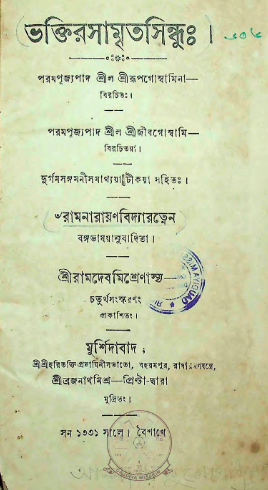 ভক্তিরসামৃতসিন্ধুঃ।
পরমপূজ্যপাদ শ্রীল শ্রীরূপগোস্বামিনা—
বিরচিতঃ।
পরমপূজ্যপাদ শ্রীল শ্রীজীবগোস্বামি—
বিরচিতয়া
দুর্গমসঙ্গমনীসমাখ্যয়া টীকয়া সহিতঃ।
৺রামনারায়ণবিদ্যারত্নেন
বঙ্গভাষয়ানুবাদিতা।
শ্রীরামদেবমিশ্রেণাস্য
চতুর্থসংস্করণং
প্রকাশিতং।
মুর্শিদাবাদ,
বহরমপুর,
শ্রীব্রজনাথমিশ্র—প্রিণ্টার্‌দ্বারা
মুদ্রিতং।
সন ১৩৩১ সাল। বৈশাখ